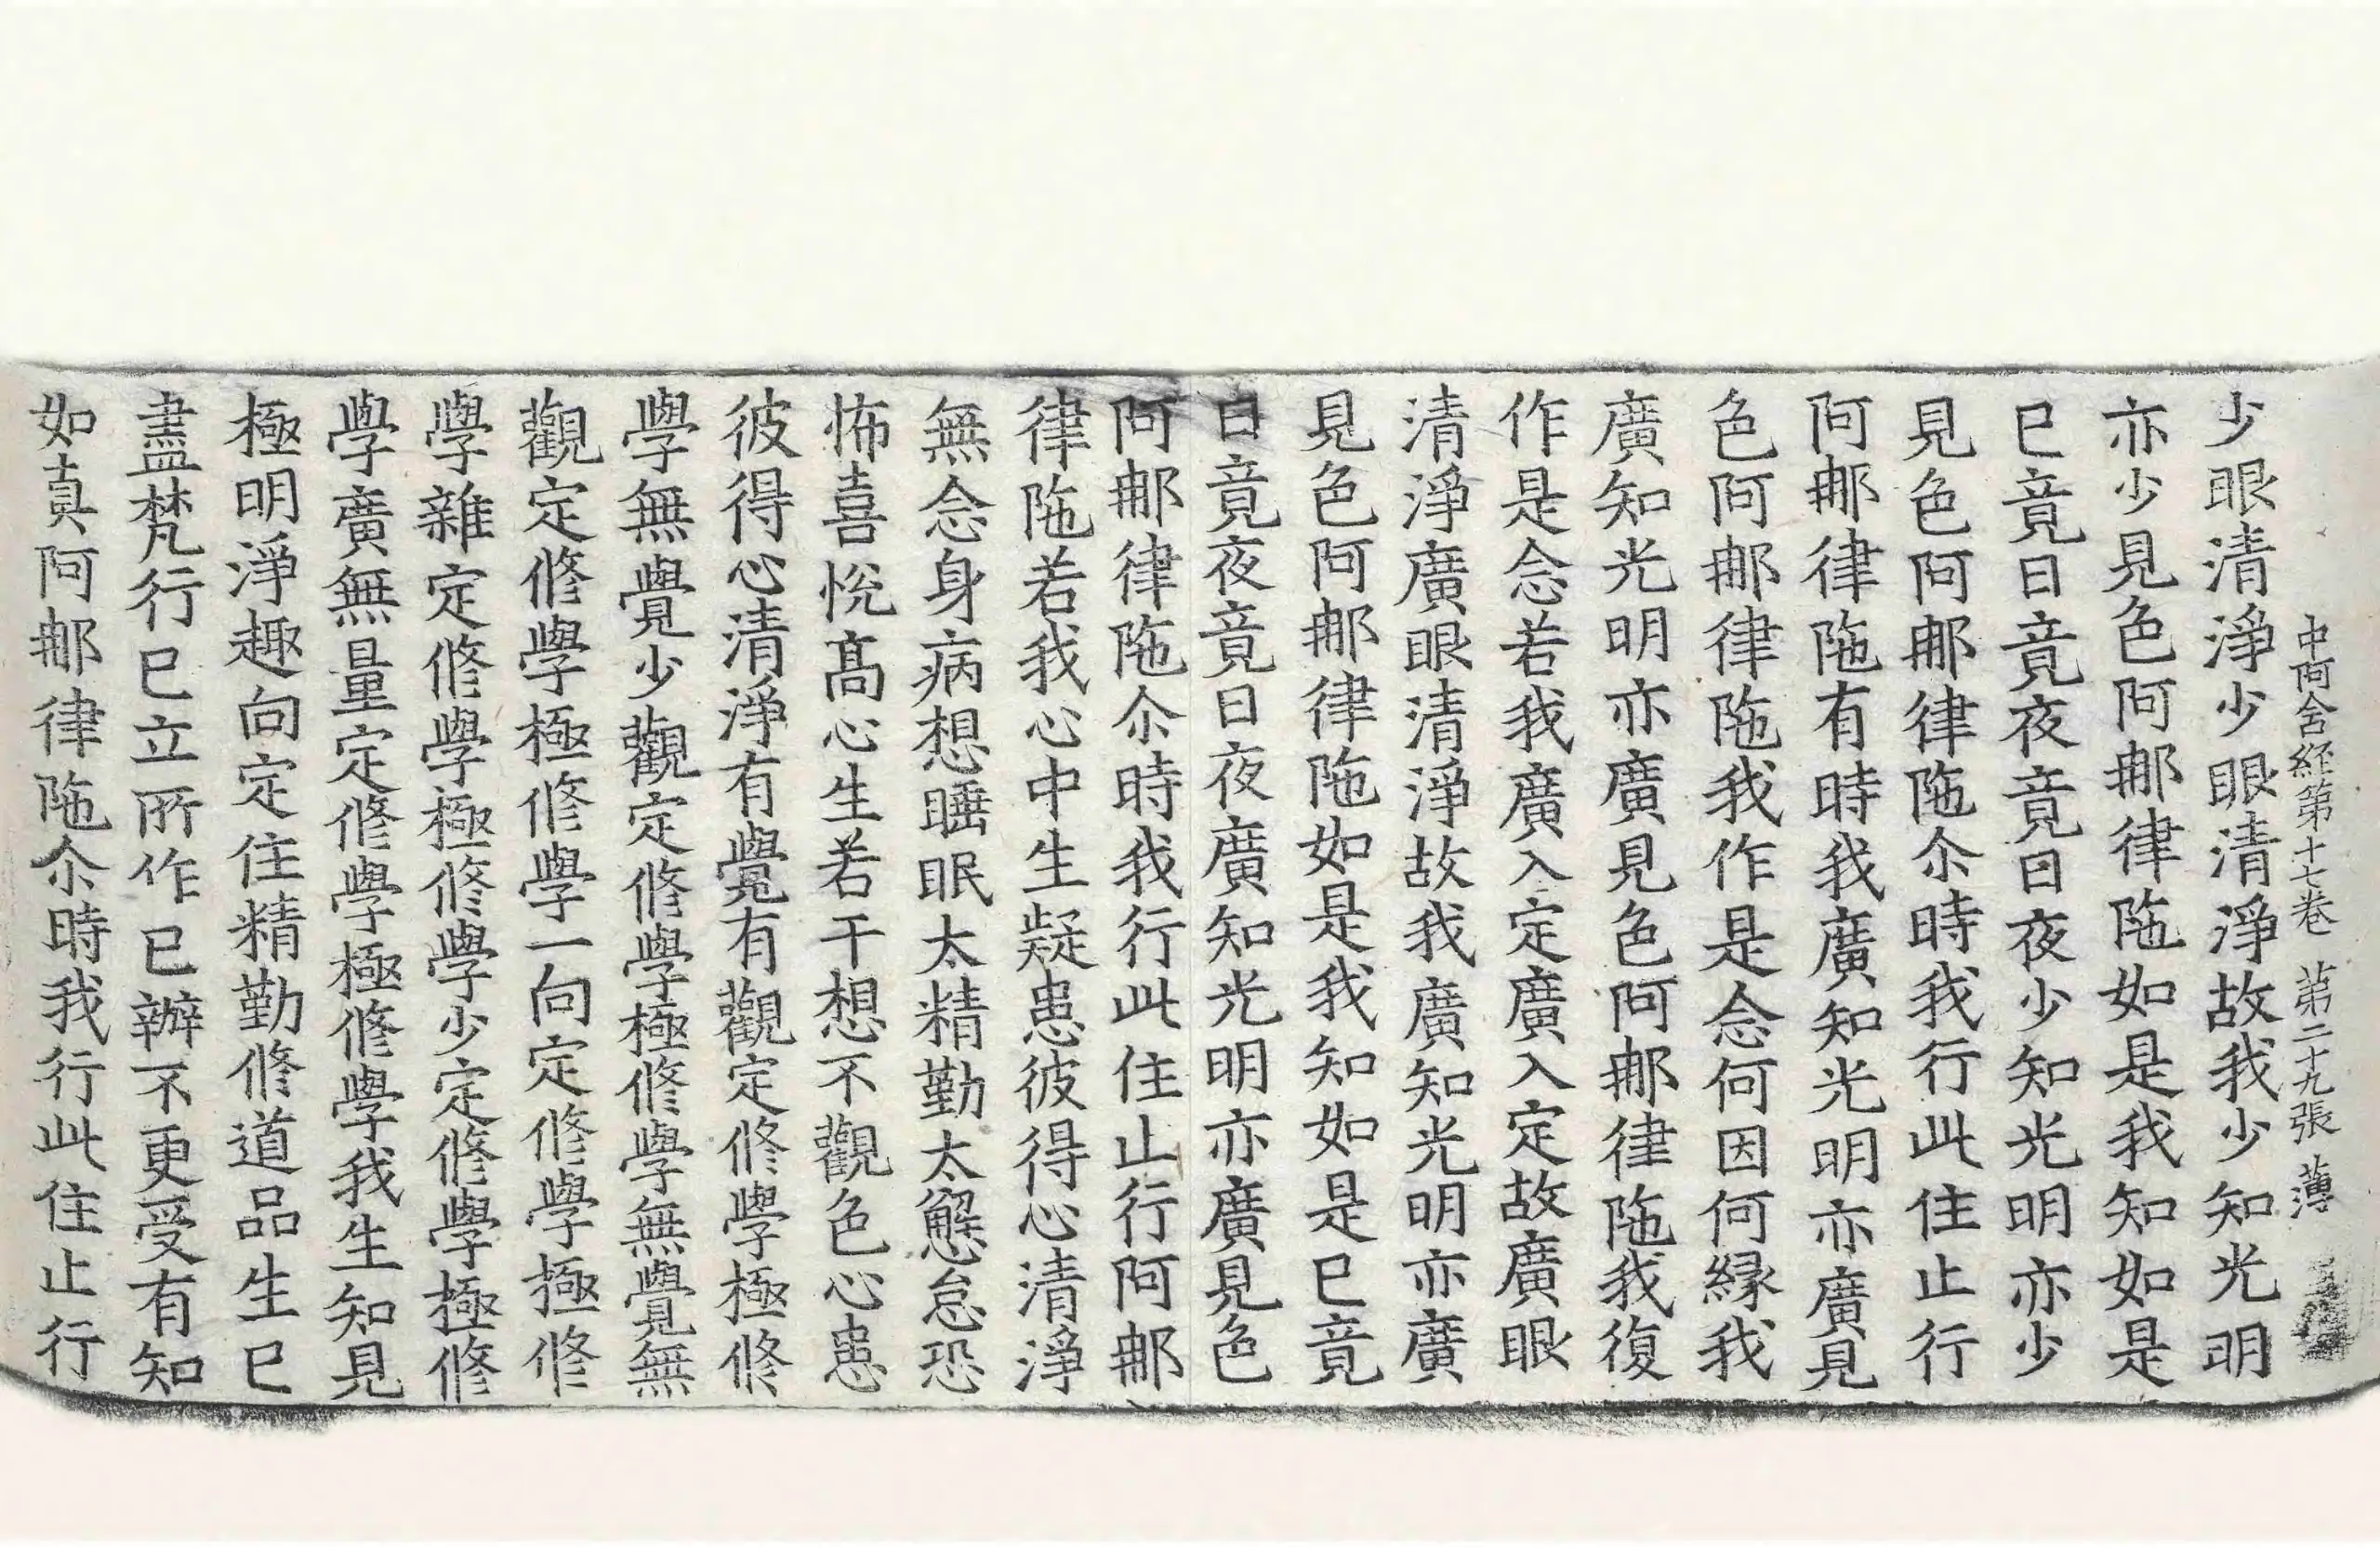 中阿含経第十七巻 第二十九張 薄
少眼清淨少眼清淨故我少知光明
亦少見色阿那律陁如是我知如是
已竟日竟夜竟日夜少知光明亦少
見色阿那律陁尒時我行此住止行
阿那律陁有時我廣知光明亦廣見
色阿那律陁我作是念何因何縁我
廣知光明亦廣見色阿那律陁我復
作是念若我廣入定廣入定故廣眼
清淨廣眼清淨故我廣知光明亦廣
見色阿那律陁如是我知如是已竟
日竟夜竟日夜廣知光明亦廣見色
阿那律陁尒時我行此住止行阿那
律陁若我心中生疑患彼得心清淨
無念身病想睡眠太精勤太懈怠恐
怖喜悅髙心生若干想不觀色心患
彼得心清淨有覺有觀定修學極修
學無覺少觀定修學極修學無覺無
觀定修學極修學一向定修學極修
學雜定修學極修學少定修學極修
學廣無量定修學極修學我生知見
極明淨趣向定住精勤修道品生已
盡梵行已立所作已辦不更受有知
如真阿那律陁尒時我行此住止行